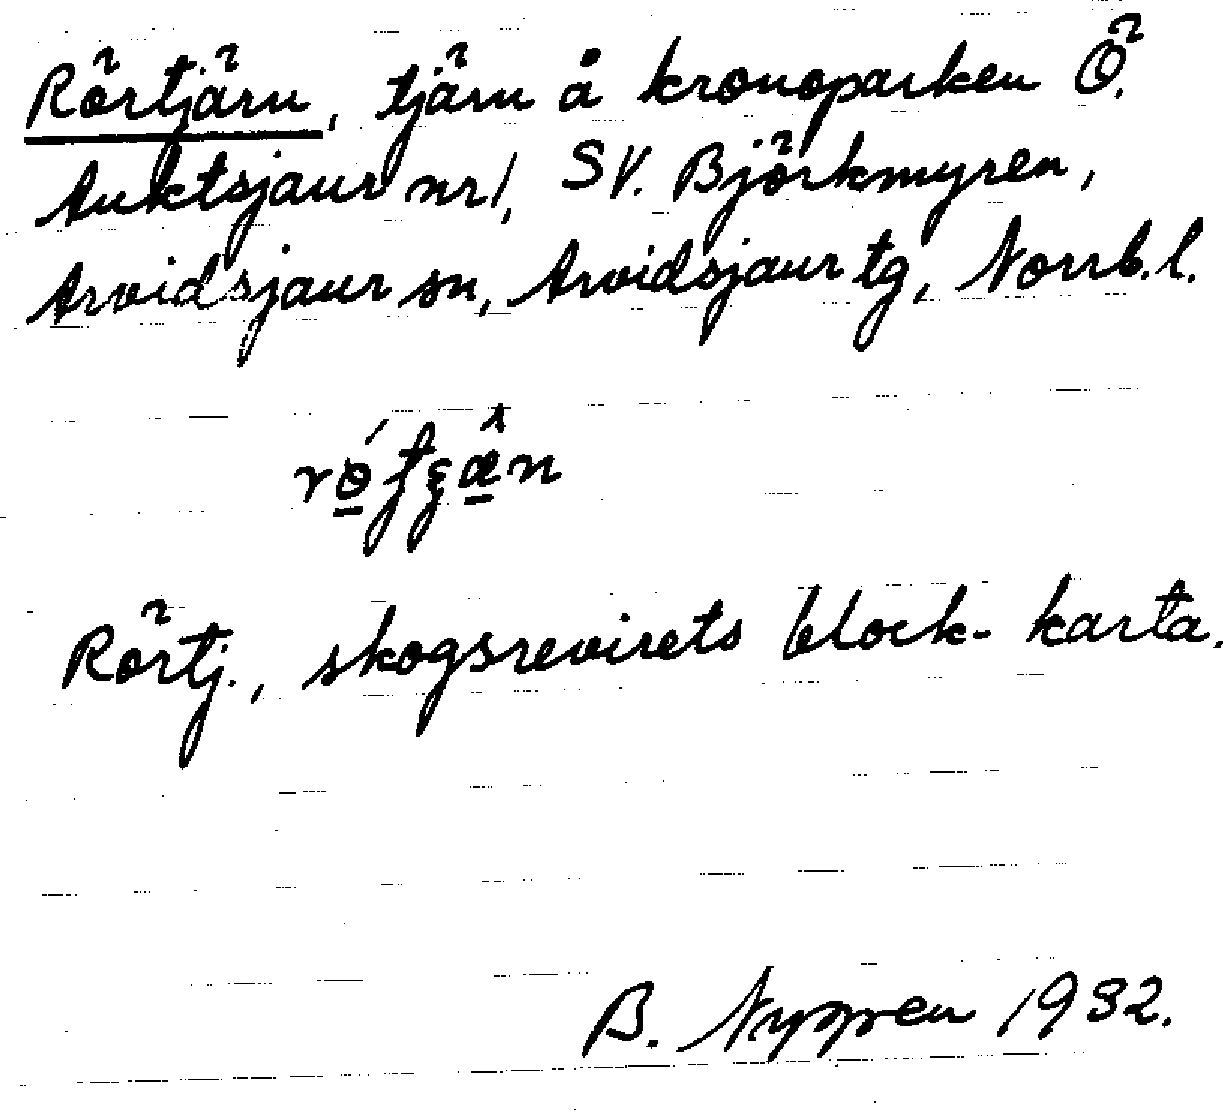 Rörtjärn, tjärn å kronoparken Ö.
Auktsjaur nr 1, SV. Björkmyren,
Arvidsjaur sn, Arvidsjaur tg, Norrb. l.
Rörtj., skogsrevirets block-karta.
B. Nygren 1932.